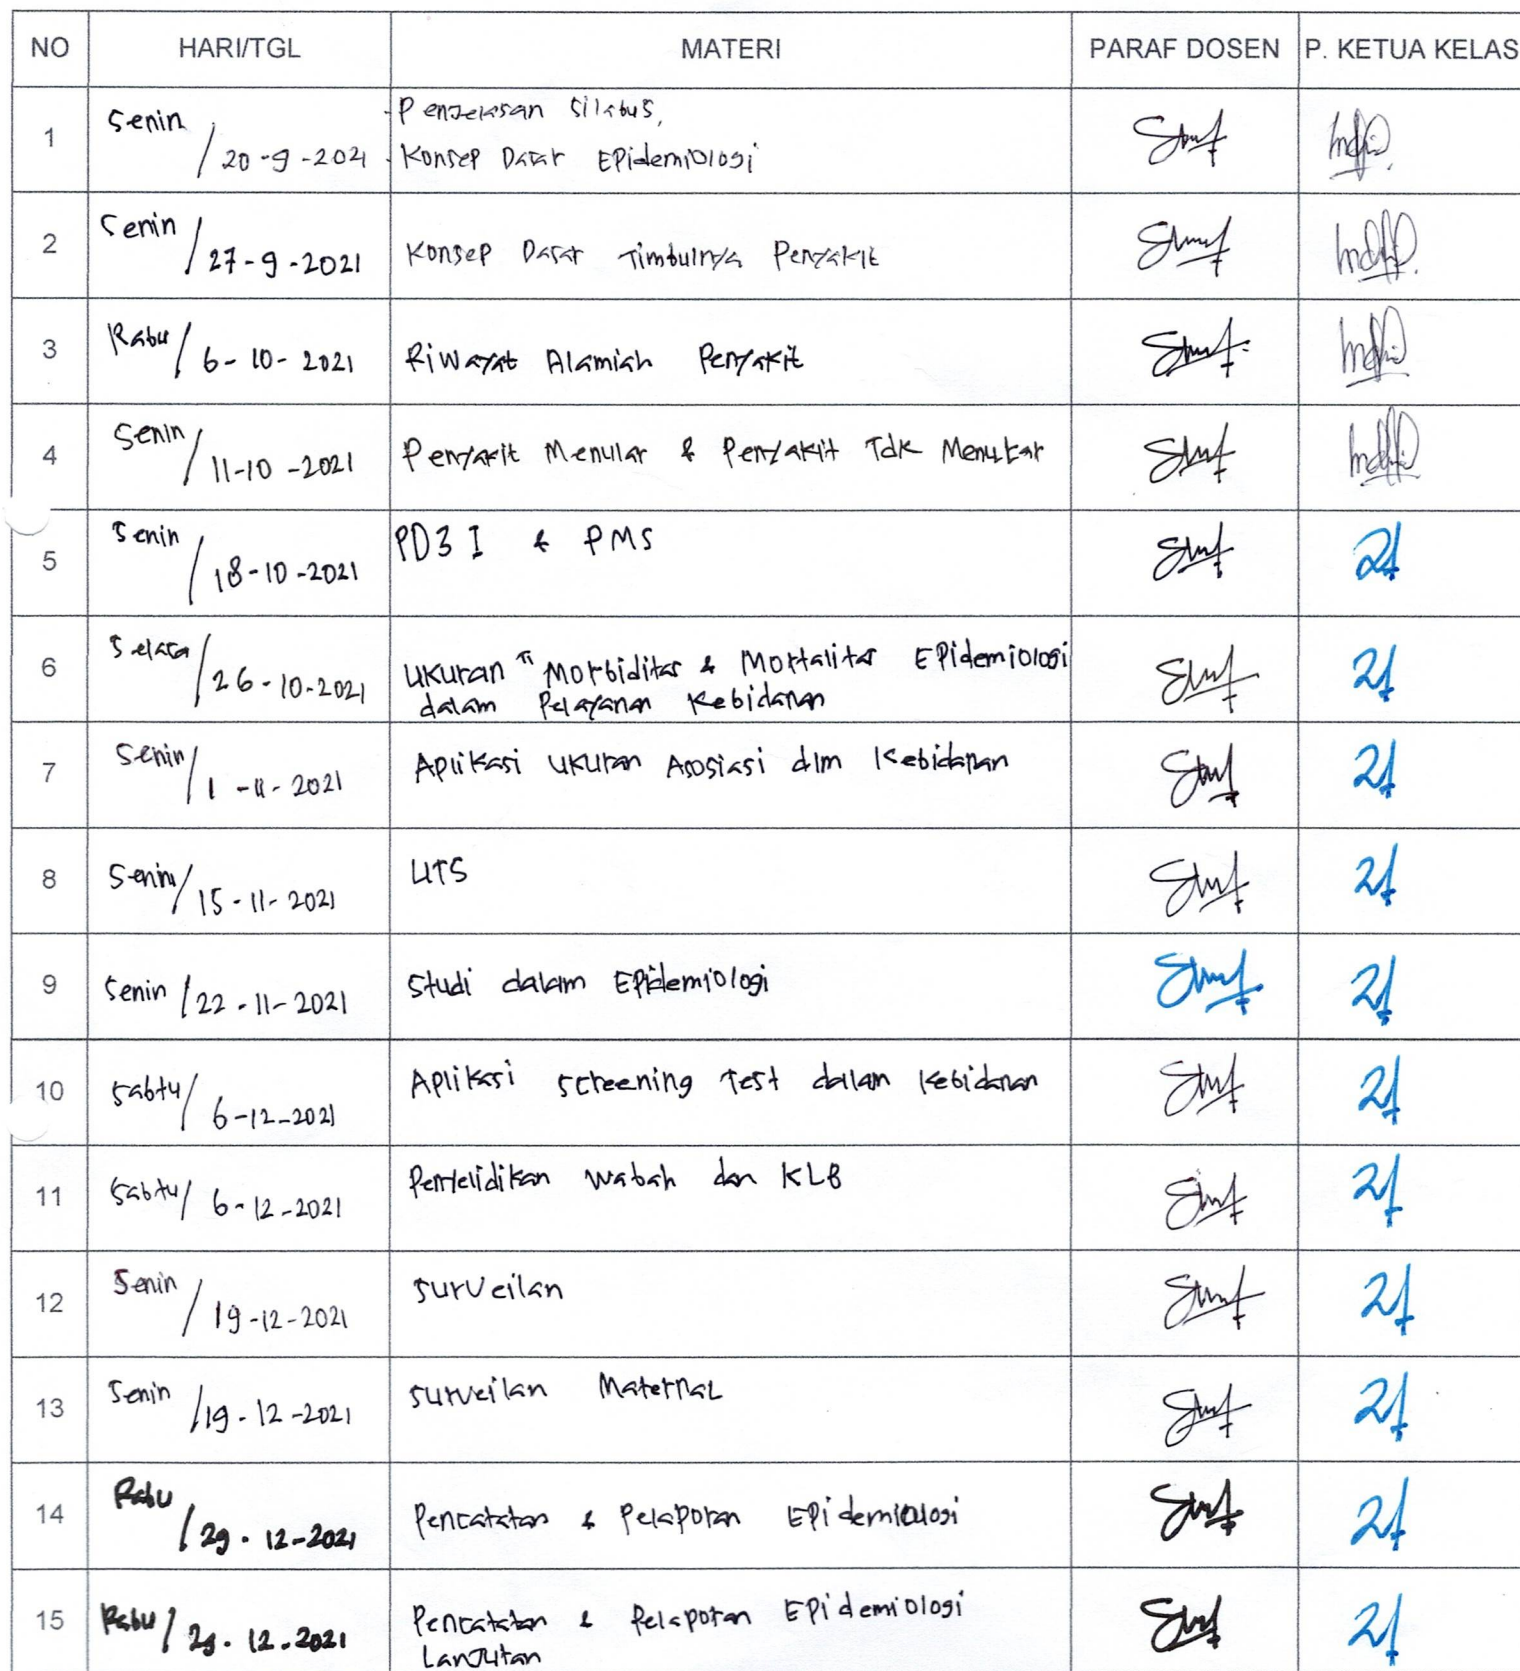 NO HARI/TGL MATERI PARAF DOSEN P. KETUA KELAS
1 Senin / 20-9-2021 - Penjelasan Silabus,
- Konsep Dasar Epidemiologi
2 Senin / 27-9-2021 Konsep Dasar Timbulnya Penyakit
3 Rabu / 6-10-2021 Riwayat Alamiah Penyakit
4 Senin / 11-10-2021 Penyakit Menular & Penyakit Tdk Menular
5 Senin / 18-10-2021 PD3I & PMS
6 Selasa / 26-10-2021 Ukuran" Morbiditas & Mortalitas Epidemiologi
dalam Pelayanan Kebidanan
7 Senin / 1-11-2021 Aplikasi Ukuran Asosiasi dlm Kebidanan
8 Senin / 15-11-2021 UTS
9 Senin / 22-11-2021 Studi dalam Epidemiologi
10 Sabtu / 6-12-2021 Aplikasi Screening Test dalam Kebidanan
11 Sabtu / 6-12-2021 Penyelidikan Wabah dan KLB
12 Senin / 19-12-2021 Surveilan
13 Senin / 19-12-2021 Surveilan Maternal
14 Rabu / 29-12-2021 Pencatatan & Pelaporan Epidemiologi
15 Rabu / 29.12.2021 Pencatatan & Pelaporan Epidemiologi
Lanjutan